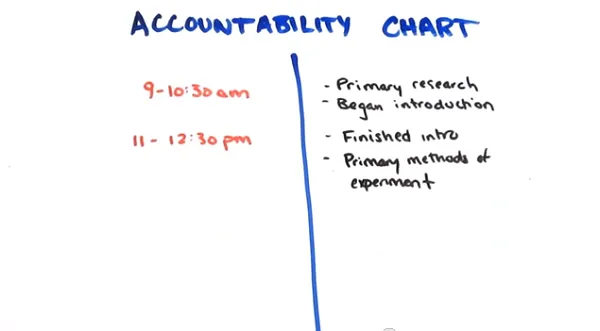 ACCOUNTABILITY CHART
9-10:30am
- Primary research
- Began introduction
11 - 12:30pm
- Finished intro
- Primary methods of
experiment